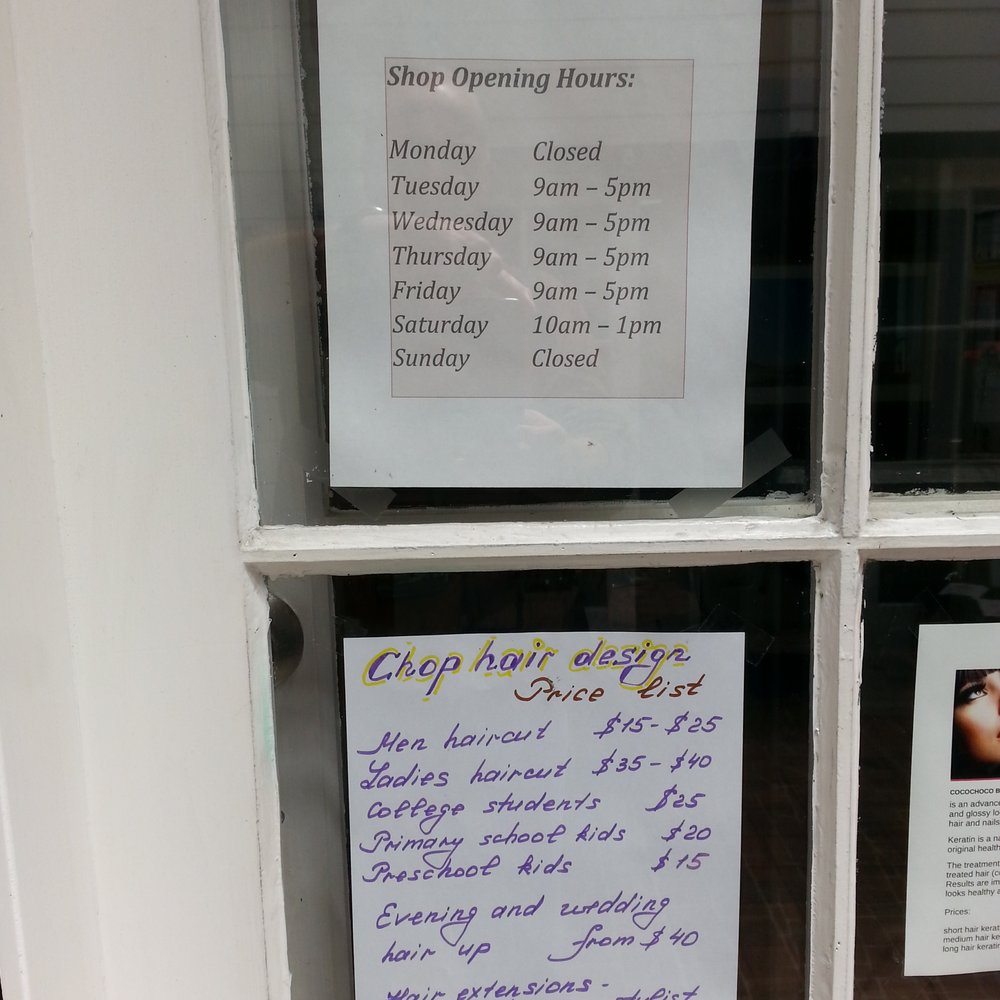 Shop Opening Hours:
Monday Closed
Tuesday 9am – 5pm
Wednesday 9am – 5pm
Thursday 9am – 5pm
Friday 9am – 5pm
Saturday 10am – 1pm
Sunday Closed
Chop hair design
Price list
Men haircut $15-$25
Ladies haircut $35-$40
College students $25
Primary school kids $20
Preschool kids $15
Evening and wedding
hair up from $40
Hair extensions -
stylist
COCOCHOCO B
is an advanc
and glossy lo
hair and nails
Keratin is a na
original health
The treatment
treated hair (c
Results are im
looks healthy a
Prices:
short hair kerat
medium hair ke
long hair keratin